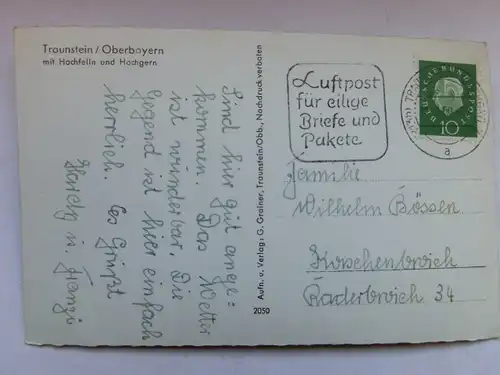 Traunstein/Oberbayern
mit Hochfelln und Hochgern
Sind hier gut ange=
kommen. Das Wetter
ist wunderbar. Die
Gegend ist hier einfach
herrlich. Es Grüßt
Hardy u. Franzi
Aufn. u. Verlag: G. Grainer, Traunstein/Obb., Nachdruck verboten
2050
Luftpost
für eilige
Briefe und
Pakete
DEUTSCHE BUNDESPOST
10
a
Familie
Wilhelm Bössen
Korschenbroich
Raderbroich 34